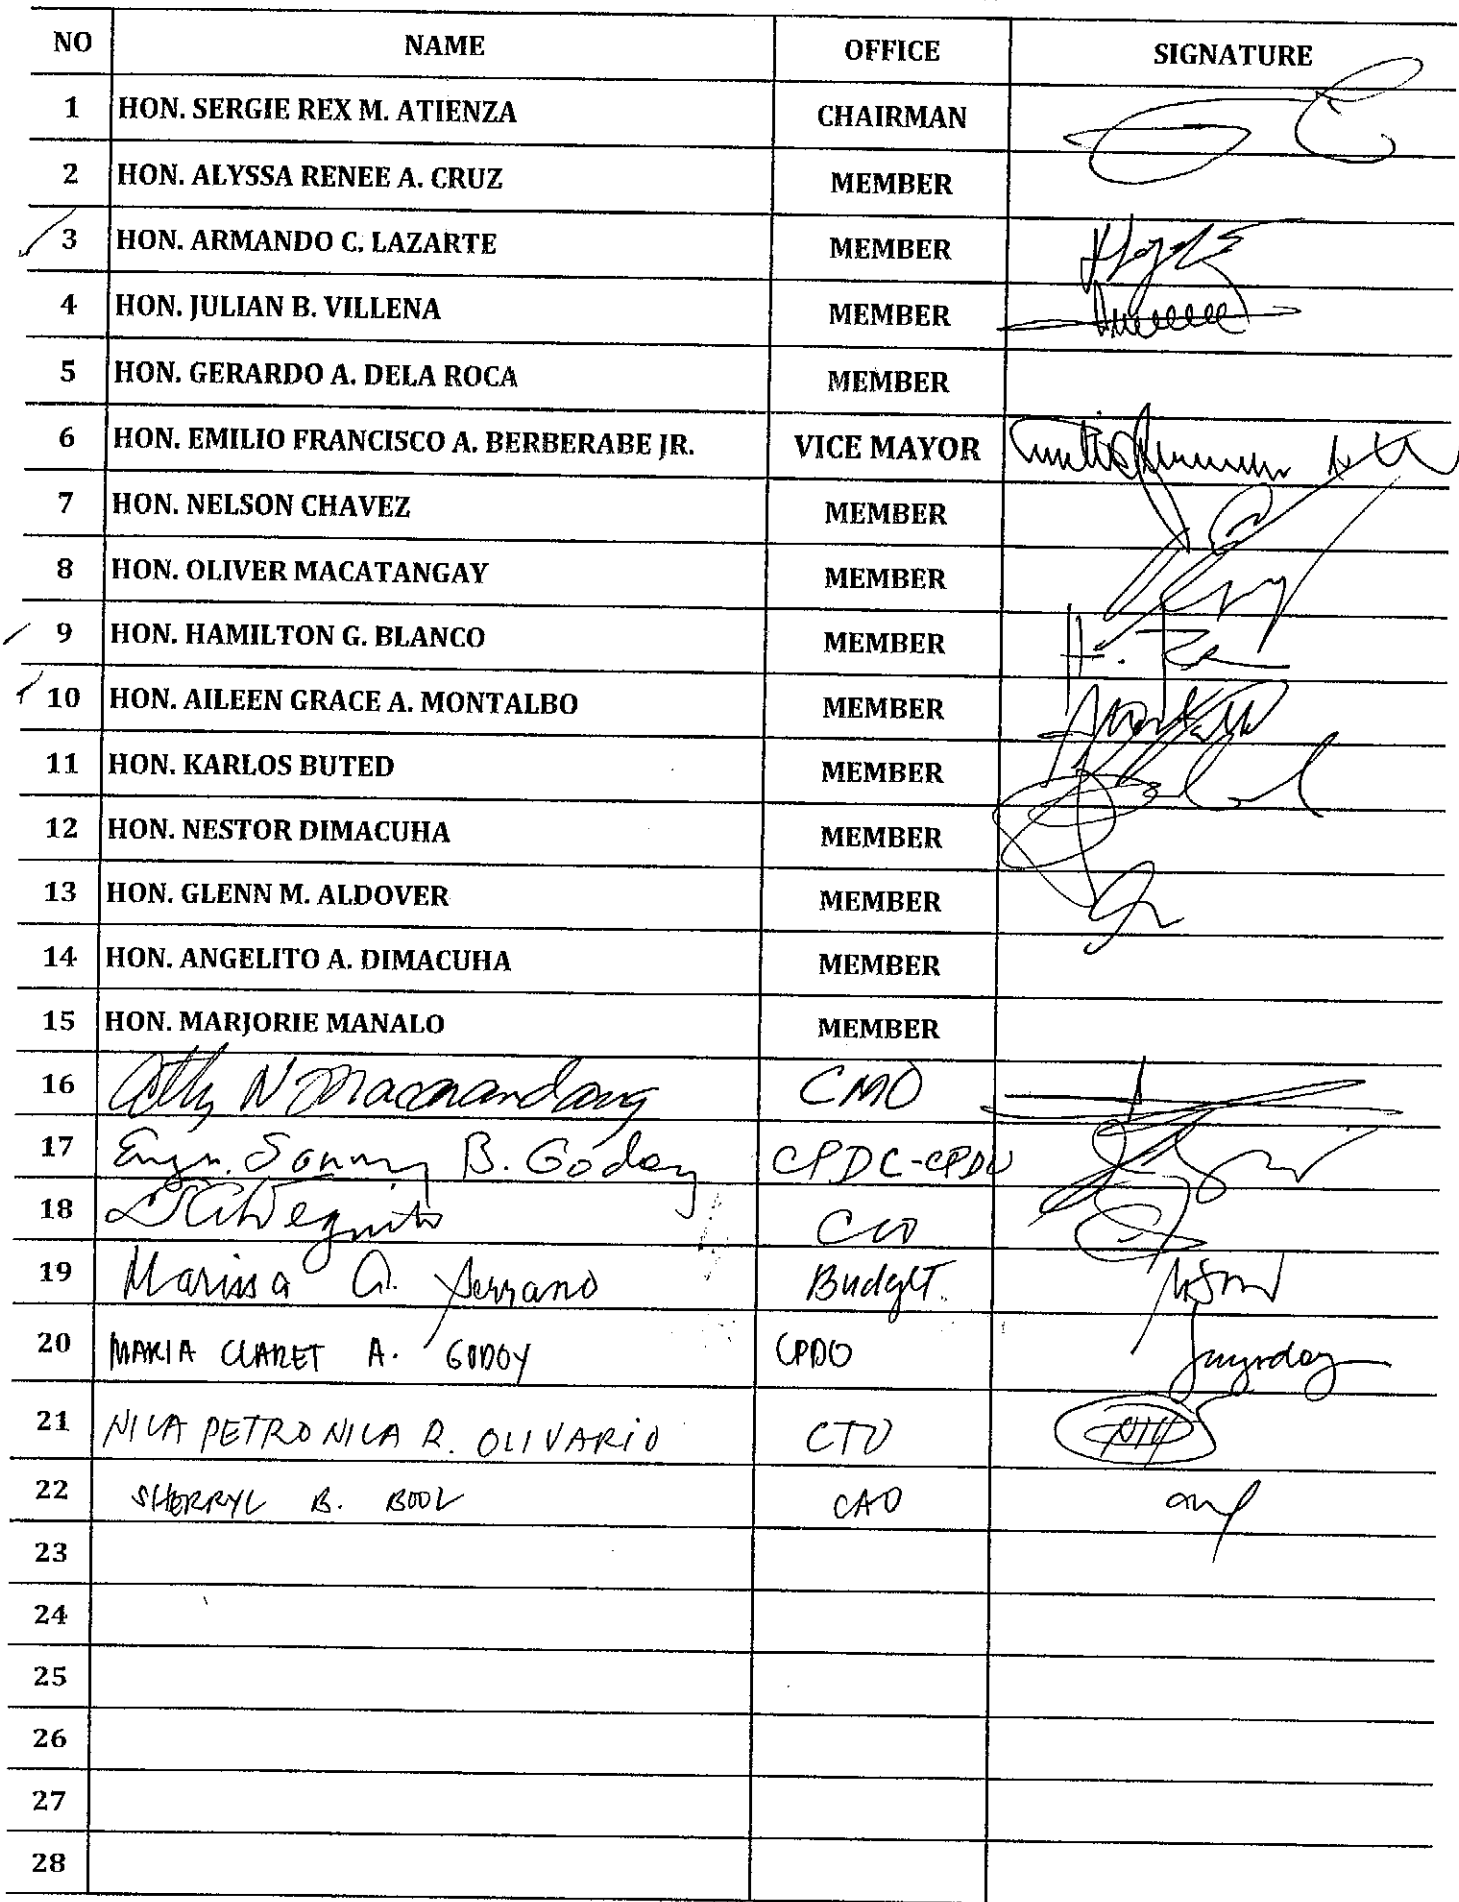 NO NAME OFFICE SIGNATURE
1 HON. SERGIE REX M. ATIENZA CHAIRMAN
2 HON. ALYSSA RENEE A. CRUZ MEMBER
3 HON. ARMANDO C. LAZARTE MEMBER
4 HON. JULIAN B. VILLENA MEMBER
5 HON. GERARDO A. DELA ROCA MEMBER
6 HON. EMILIO FRANCISCO A. BERBERABE JR. VICE MAYOR
7 HON. NELSON CHAVEZ MEMBER
8 HON. OLIVER MACATANGAY MEMBER
9 HON. HAMILTON G. BLANCO MEMBER
10 HON. AILEEN GRACE A. MONTALBO MEMBER
11 HON. KARLOS BUTED MEMBER
12 HON. NESTOR DIMACUHA MEMBER
13 HON. GLENN M. ALDOVER MEMBER
14 HON. ANGELITO A. DIMACUHA MEMBER
15 HON. MARJORIE MANALO MEMBER
16 Atty N Macarandang CMO
17 Engr. Sonny B. Godoy CPDC-CPDO
18
19 Marissa G. Serrano Budget.
20 MARIA CLARET A. GODOY CPDO
21 NILA PETRONILA R. OLIVARIO CTO
22 SHERRYL B. BOOL CAO
23
24
25
26
27
28